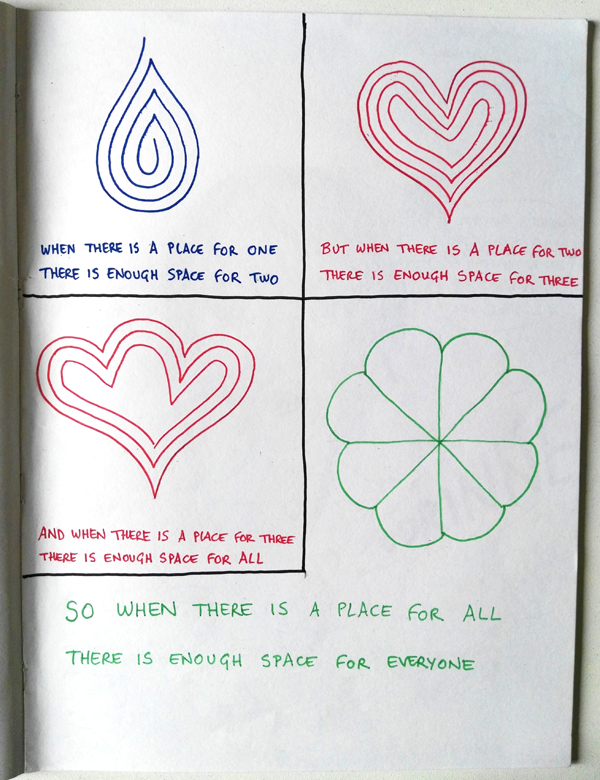 WHEN THERE IS A PLACE FOR ONE
THERE IS ENOUGH SPACE FOR TWO
BUT WHEN THERE IS A PLACE FOR TWO
THERE IS ENOUGH SPACE FOR THREE
AND WHEN THERE IS A PLACE FOR THREE
THERE IS ENOUGH SPACE FOR ALL
SO WHEN THERE IS A PLACE FOR ALL
THERE IS ENOUGH SPACE FOR EVERYONE